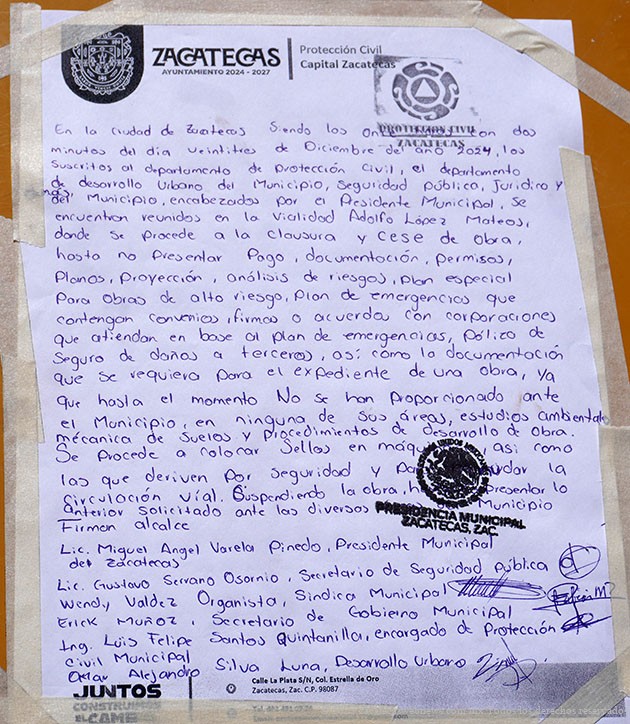 ZACATECAS
AYUNTAMIENTO 2024 - 2027
Protección Civil
Capital Zacatecas
PROTECCIÓN CIVIL
ZACATECAS
En la Ciudad de Zacatecas Siendo las once con dos
minutos del día veintitres de Diciembre del año 2024, los
suscritos al departamento de Protección Civil, el departamento
de desarrollo Urbano del Municipio, Seguridad pública, Juridico y
del Municipio, encabezados por el Presidente Municipal, se
encuentran reunidos en la Vialidad Adolfo López Mateos,
donde se procede a la clausura y cese de obra,
hasta no presentar Pago, documentación, permisos,
Planos, Proyección, análisis de riesgos, plan especial
Para obras de alto riesgo, plan de emergencias que
contengan convenios, firmas o acuerdos con corporaciones
que atiendan en base al plan de emergencias, póliza de
Seguro de daños a terceros, así como la documentación
que se requiera para el expediente de una obra, ya
que hasta el momento No se han proporcionado ante
el Municipio, en ninguna de sus áreas, estudios ambientale
mécanica de suelos y procedimientos de desarrollo de obra.
Se procede a colocar Sellos en así como
las que deriven por seguridad y la
circulación vial. Suspendiendo la obra, presentar lo
anterior solicitado ante las diversos Municipio
Firman alcalce
PRESIDENCIA MUNICIPAL
ZACATECAS, ZAC.
Lic. Miguel Angel Varela Pinedo, Presidente Municipal
de Zacatecas
Lic. Gustavo Serrano Osornio, Secretario de Seguridad Pública
Wendy Valdez Organista, Sindica Municipal
Erick Muñoz, Secretario de Gobierno Municipal
Ing. Luis Felipe Santos Quintanilla, encargado de Protección
Civil Municipal
Alejandro Silva Luna, Desarrollo Urbano
JUNTOS
CONSTRUIMOS
EL CAMB
Calle La Plata S/N, Col. Estrella de Oro
Zacatecas, Zac. C.P. 98087
derechos reservados